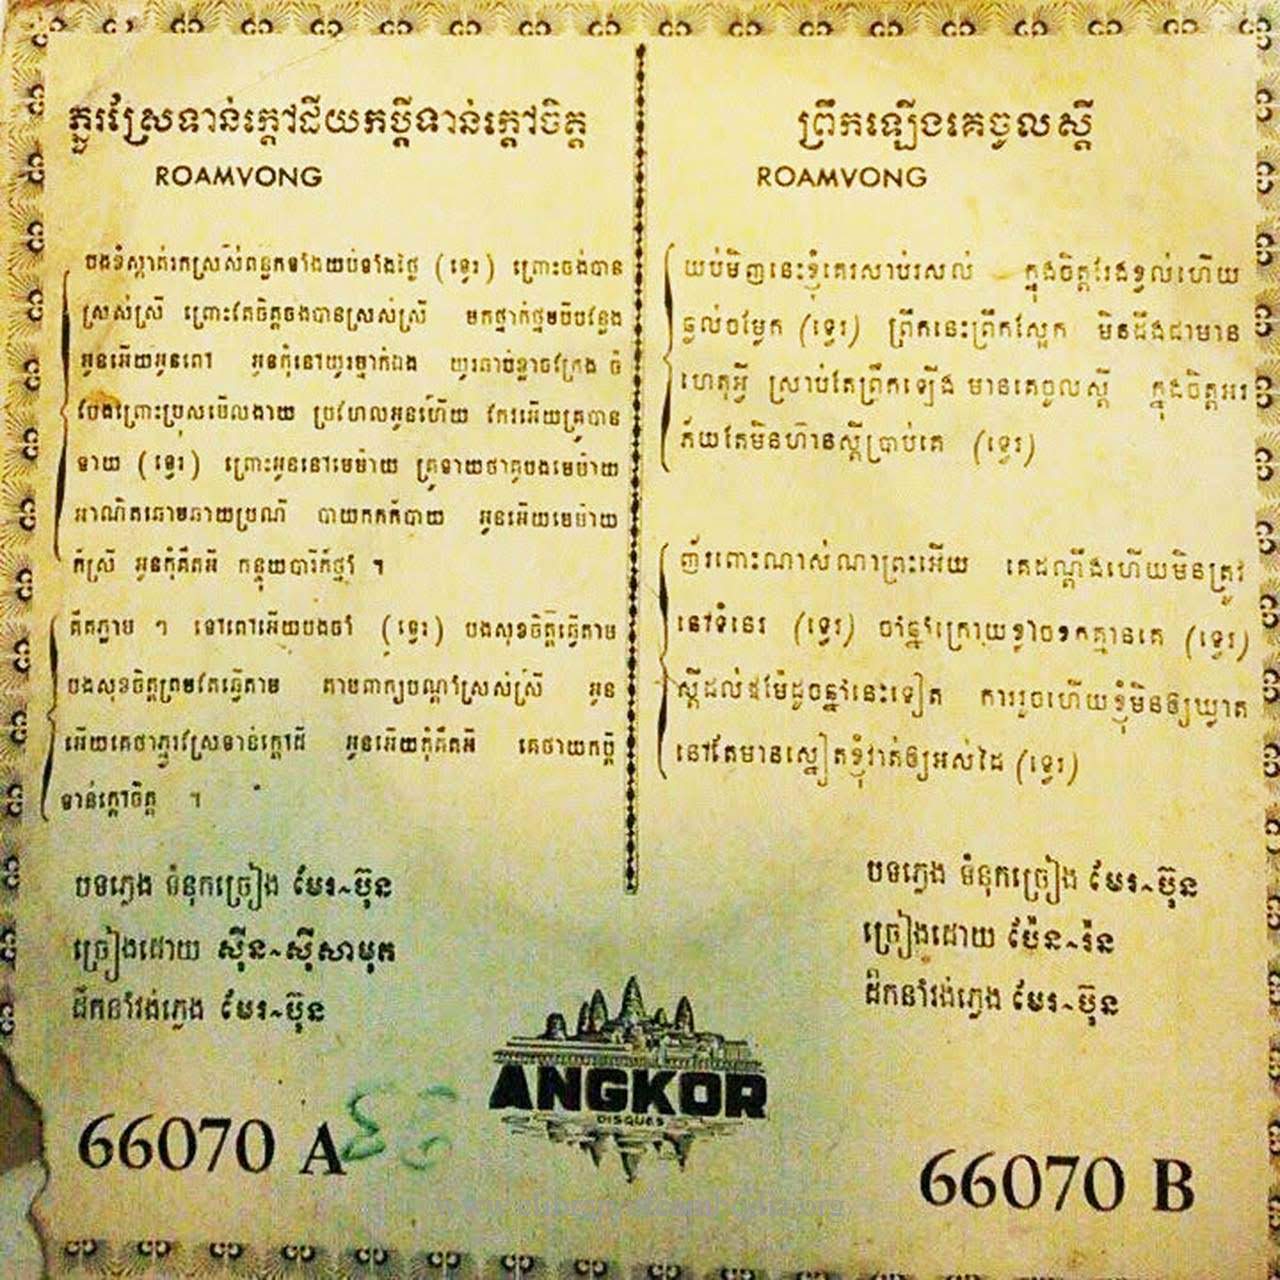 ភ្ជួរស្រែទាន់ក្ដៅដីយកប្ដីទាន់ក្ដៅចិត្ត
ROAMVONG
បងខំស្កាត់រកស្រស់ពន្លកទាំងយប់ទាំងថ្ងៃ (ទ្វេរ) ព្រោះចង់បាន
ស្រស់ស្រី ព្រោះតែចិត្តចងបានស្រស់ស្រី មកថ្នាក់ថ្នមបីបន្លែង
អូនអើយអូនពៅ អូនកុំនៅយូរម្នាក់ឯង យូរឆាប់ខ្លាចក្រែង ចំ
បែងព្រោះប្រុសមើលងាយ ប្រហែលអូនហើយ កែវអើយគ្រូបាន
ទាយ (ទ្វេរ) ព្រោះអូននៅមេម៉ាយ គ្រូទាយថាគូបងមេម៉ាយ
អាណិតឆោមឆាយប្រណី បាយកកក៏បាយ អូនអើយមេម៉ាយ
ក៏ស្រី អូនកុំគិតអី កន្ទុយបារីក៏ផ្ទុំ ។
គិតភ្លាម ៗ ទៅពៅអើយបងចាំ (ទ្វេរ) បងសុខចិត្តធ្វើតាម
បងសុខចិត្តព្រមតែធ្វើតាម តាមពាក្យបណ្ដាំស្រស់ស្រី អូន
អើយគេថាភ្ជួរស្រែទាន់ក្ដៅដី អូនអើយកុំគិតអី គេថាយកប្ដី
ទាន់ក្ដៅចិត្ត ។
បទភ្លេង ទំនុកច្រៀង មែរ~ប៊ុន
ច្រៀងដោយ ស៊ីន~ស៊ីសាមុត
ដឹកនាំវង់ភ្លេង មែរ~ប៊ុន
66070 A
ព្រឹកឡើងគេចូលស្ដី
ROAMVONG
យប់មិញនេះខ្ញុំគេរសាប់រសល់ ក្នុងចិត្តរែងខ្វល់ហើយ
ឆ្ងល់ចម្លែក (ទ្វេរ) ព្រឹកនេះព្រឹកស្អែក មិនដឹងជាមាន
ហេតុអ្វី ស្រាប់តែព្រឹកឡើង មានគេចូលស្ដី ក្នុងចិត្តអរ
ភ័យតែមិនហ៊ានស្ដីប្រាប់គេ (ទ្វេរ)
ញ័រពោះណាស់ណាព្រះអើយ គេដណ្ដឹងហើយមិនត្រូវ
នៅទំនេរ (ទ្វេរ) ចាំឆ្នាំក្រោយខ្លាចខកគ្មានគេ (ទ្វេរ)
ស្ដីដល់ឪម៉ែដូចឆ្នាំនេះទៀត ការរួចហើយខ្ញុំមិនឲ្យឃ្លាត
នៅតែមានស្នៀតខ្ញុំវាត់ឲ្យអស់ដៃ (ទ្វេរ)
បទភ្លេង ទំនុកច្រៀង មែរ~ប៊ុន
ច្រៀងដោយ ប៉ែន~រ៉ន
ដឹកនាំវង់ភ្លេង មែរ~ប៊ុន
ANGKOR
DISQUES
66070 B